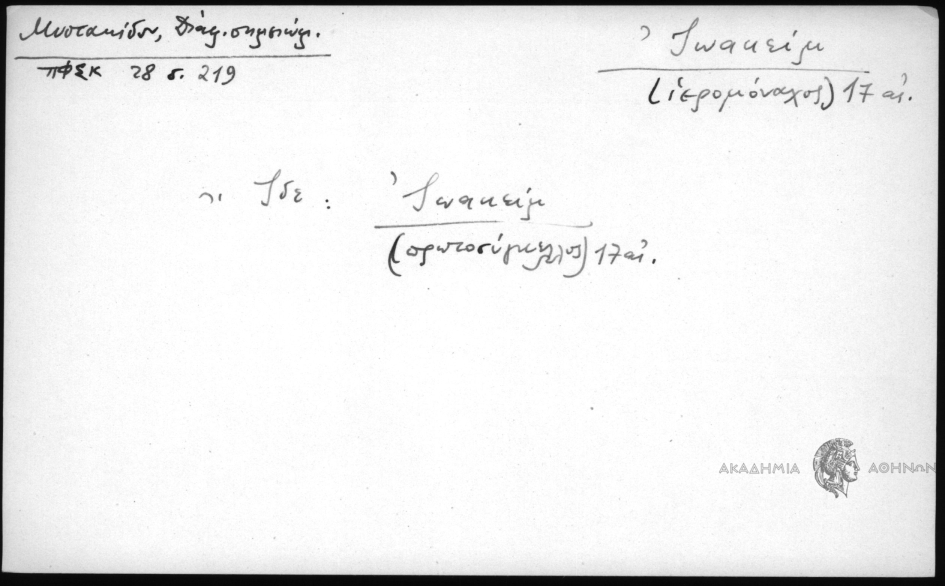 Μυστακίδου, Διάφ. σημειώμ.
ΠΦΣΚ 28 σ. 219
Ἰωακείμ
(ἱερομόναχος) 17 αἰ.
Ἰδε : Ἰωακείμ
(πρωτοσύγκελλος) 17 αἰ.
ΑΚΑΔΗΜΙΑ ΑΘΗΝΩΝ